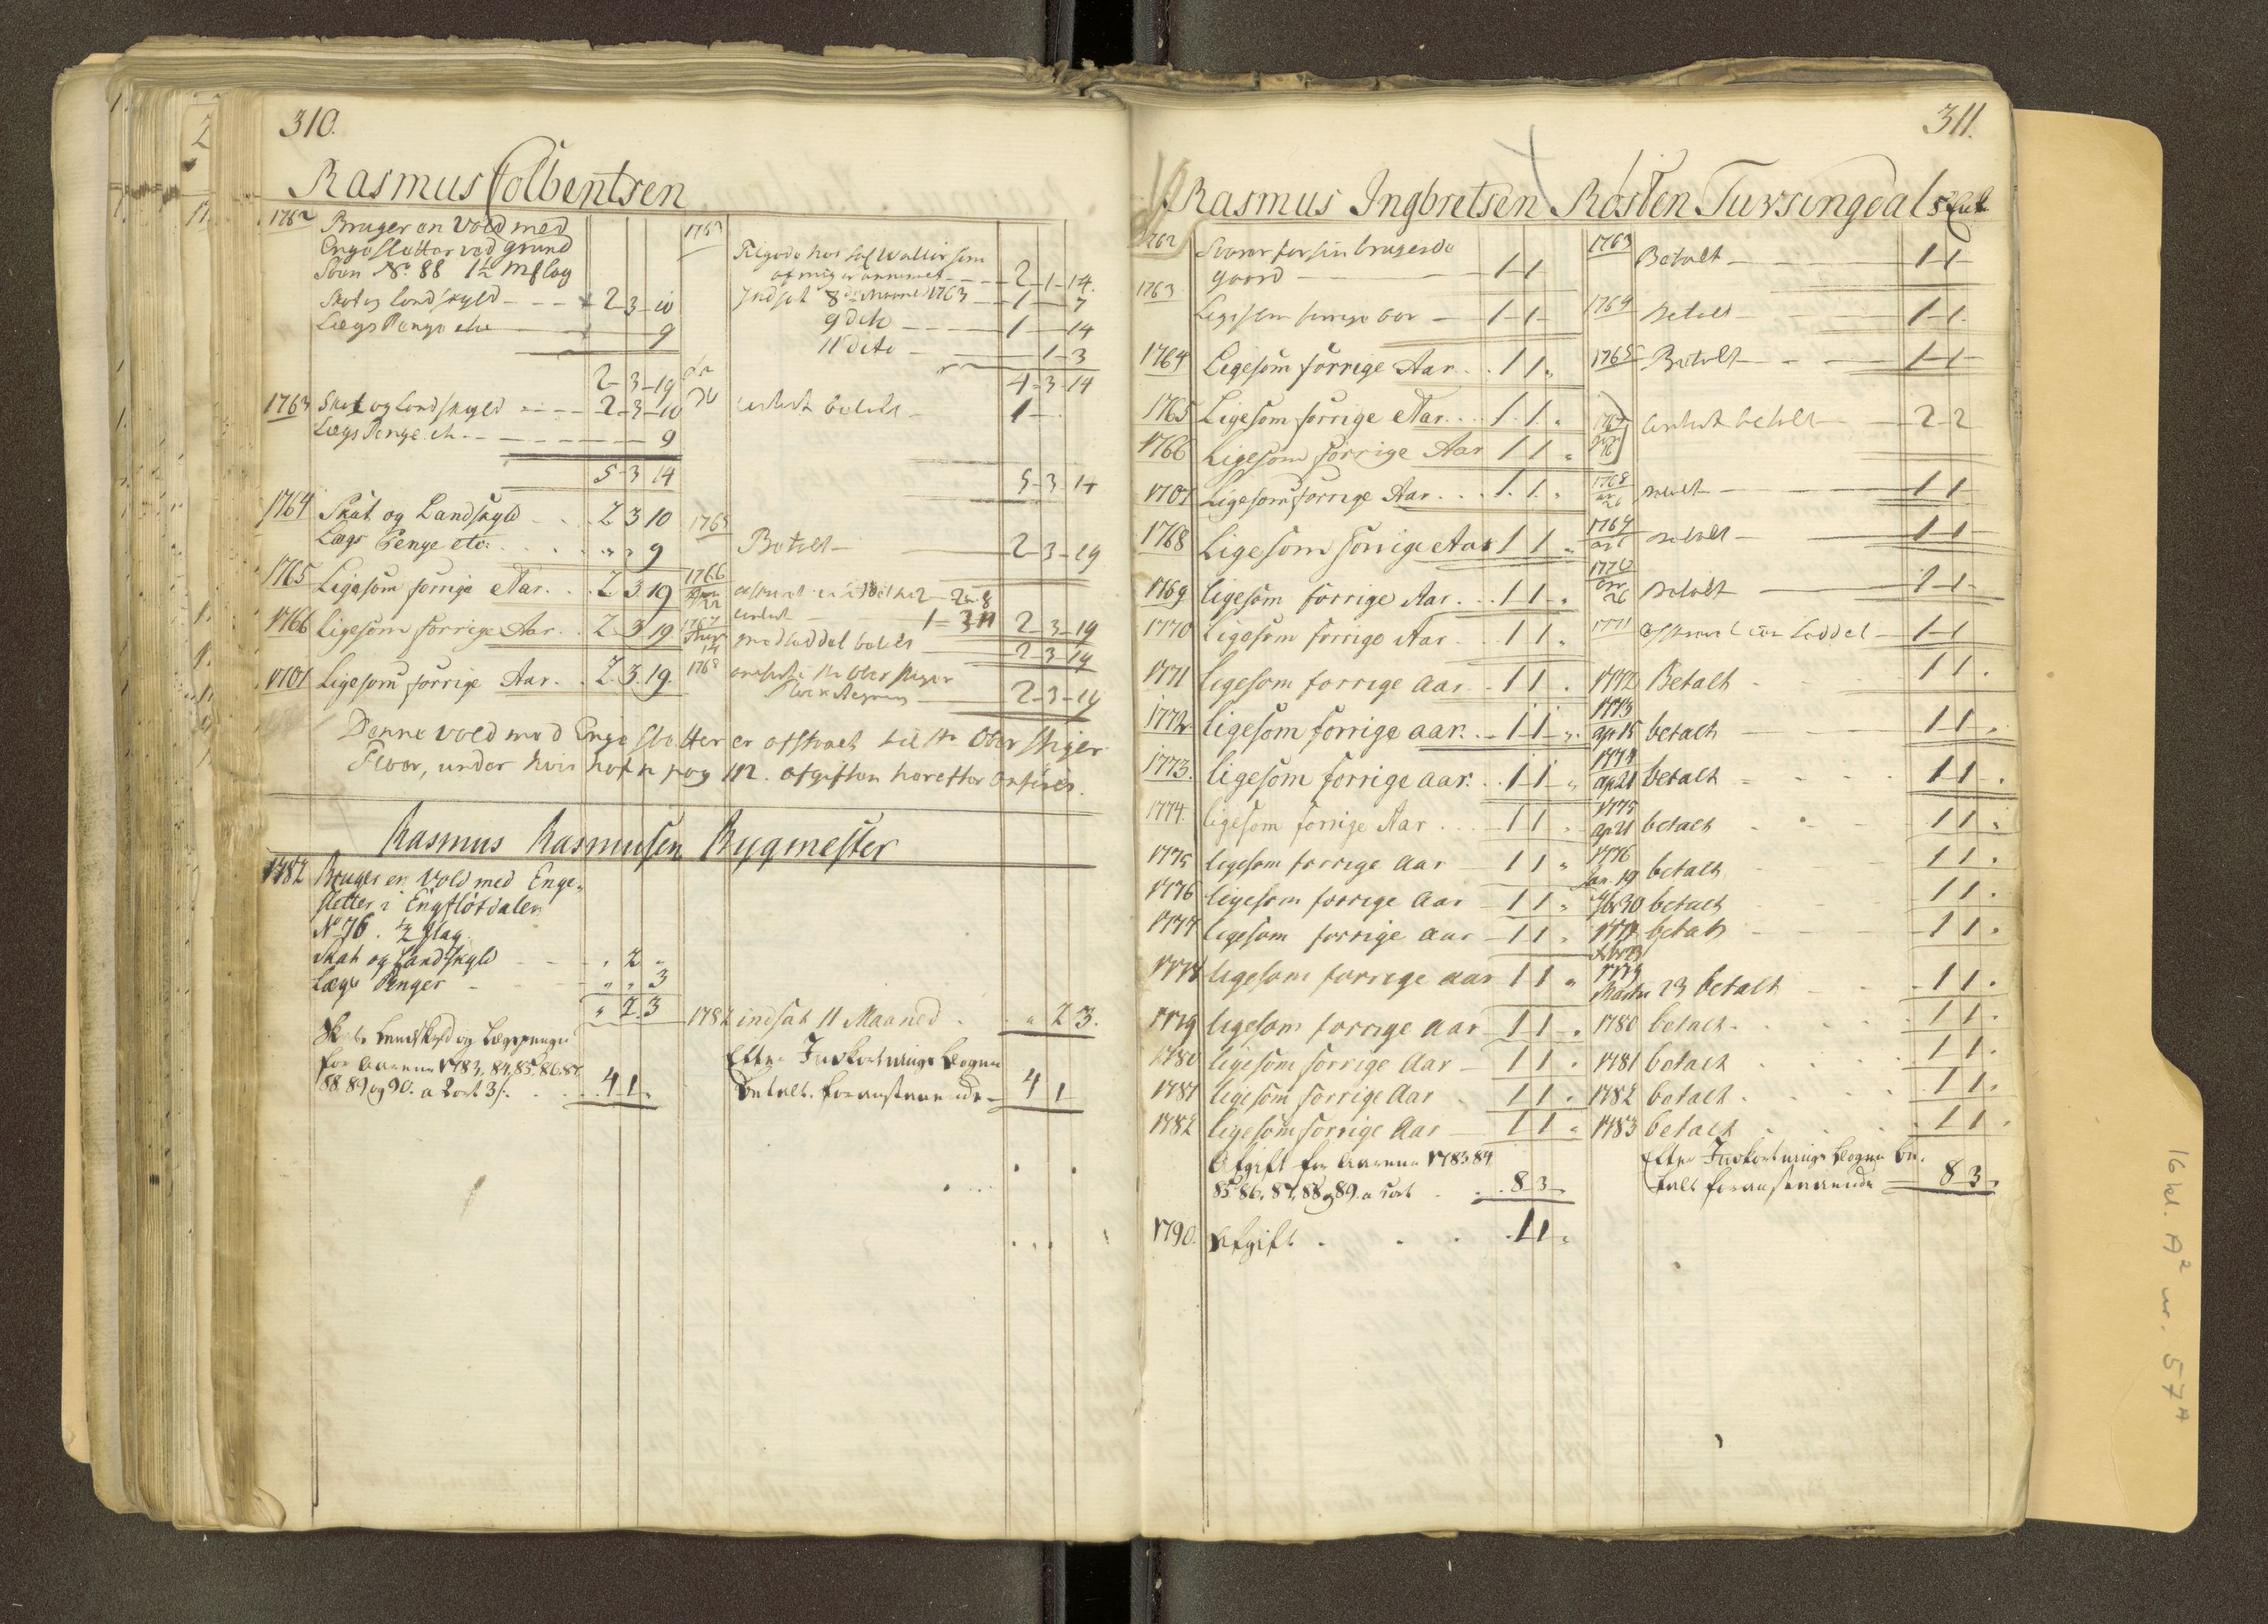 310.
Rasmus Colbentsen
1762 Bruger en Vold med
Enge Sletter ved Grund
Soen No. 88 1 1/2 Mflag
Skat og Landskyld - - - 2-3-10
Lægs Penge etc - 9
2-3-19
1763 Skat og Landskyld - - - 2-3-10
Lægs Penge etc. - 9
5-3-14
1764 Skat og Landskyld . . 2 3 10
Lægs Penge etc. . . . " " 9
1765 Ligesom forrige Aar. . . 2.3.19
1766 Ligesom forrige Aar. . 2.3.19
1767 Ligesom forrige Aar. . 2.3.19.
1763
Tilgode hos
af mig er annammet - - - 2-1-14.
Indsat 8de Maaned 1763 - 1-7
9 dito - - - 1-14
11 dito - 1-3
4-3-14
betalt - 1-
5-3-14
1765 Betalt - 2-3-19
1766 2-2-8
2-3-19
1767 med Seddel betalt - 2-3-19
1768 2-3-19
Denne Vold med Enge Sletter er afskaaet til Hr Ober Stiger
Floer, under hvis Nafn pag 112. afgiften herefter anføres.
Rasmus Rasmusen Bygmester
1782 Bruger en Vold med Enge-
sletter i Engflötdalen
No 76. 1/2 flag.
Skat og Landskyld - - " 2 "
Lægs Penger - - " " 3
" 2.3
1782 indsat 11 Maaned . . " 2 3.
Skat Landskyld og Lægspenge
for Aarene 1783, 84, 85, 86, 87,
88. 89 og 90. a 2 ort 3 s. . . 4 1.
Efter Indkortnings Bogen
betalt foranstaaende - 4 1
311.
Rasmus Ingbretsen Røsten Tursingdal
1762 Svarer for sin brugende
Gaard - 1-1
1763 Ligesom forrige Aar - 1-1-
1764 Ligesom forrige Aar. . . 1 1 "
1765 Ligesom forrige Aar. . . 1. 1. "
1766 Ligesom forrige Aar 1 1 "
1767 Ligesom forrige Aar. . . 1. 1. "
1768 Ligesom forrige Aar 1 1 "
1769 ligesom forrige Aar. . . 1 1. "
1770 Ligesom forrige Aar. . . 1 1 "
1771 ligesom forrige aar. . 1 1 .
1772 ligesom forrige aar. . 1 1 "
1773. ligesom forrige aar. . . 1 1 "
1774. ligesom forrige Aar. . . 1 1 "
1775 ligesom forrige Aar - 1 1 "
1776 ligesom forrige Aar - 1 1 "
1777 ligesom forrige Aar - 1 1 "
1778 ligesom forrige Aar 1 1 "
1779 ligesom forrige Aar 1 1 "
1780 ligesom forrige Aar - 1 1 "
1781 ligesom forrige Aar . 1 1 "
1782 ligesom forrige Aar - 1 1 "
Afgift for Aarene 1783 84
85. 86. 87. 88 og 89. a 5 ort . . 8 3.
1790. Afgift . . . . 1 1 "
1763 Betalt - 1-1-
1764 Betalt - 1-1-
1765 Betalt - 1-1-
1767 betalt - 2-2
1768 betalt - 1-1
1769 betalt - 1-1
1770 betalt - 1-1-
1771 Seddel - 1-1
1772 Betalt . . 1 1 .
1773
apr 15 betalt - - 1 1 .
1774
ap 21 betalt - - 1 1 .
1775
ap 21 betalt - - 1 1 "
1776
Jan. 19 betalt 1 1 .
30 betalt 1 1 .
betalt 1 1 .
1779
Martii 23 betalt . . 1 1 .
1780 betalt . . . 1 1 .
1781 betalt . . . 1 1 .
1782 betalt . . . 1 1 .
1783 betalt . . . 1 1 .
Efter Indkortnings Bogen be-
talt foranstaaende 8 3.
16 kl. A2 nr. 57 A